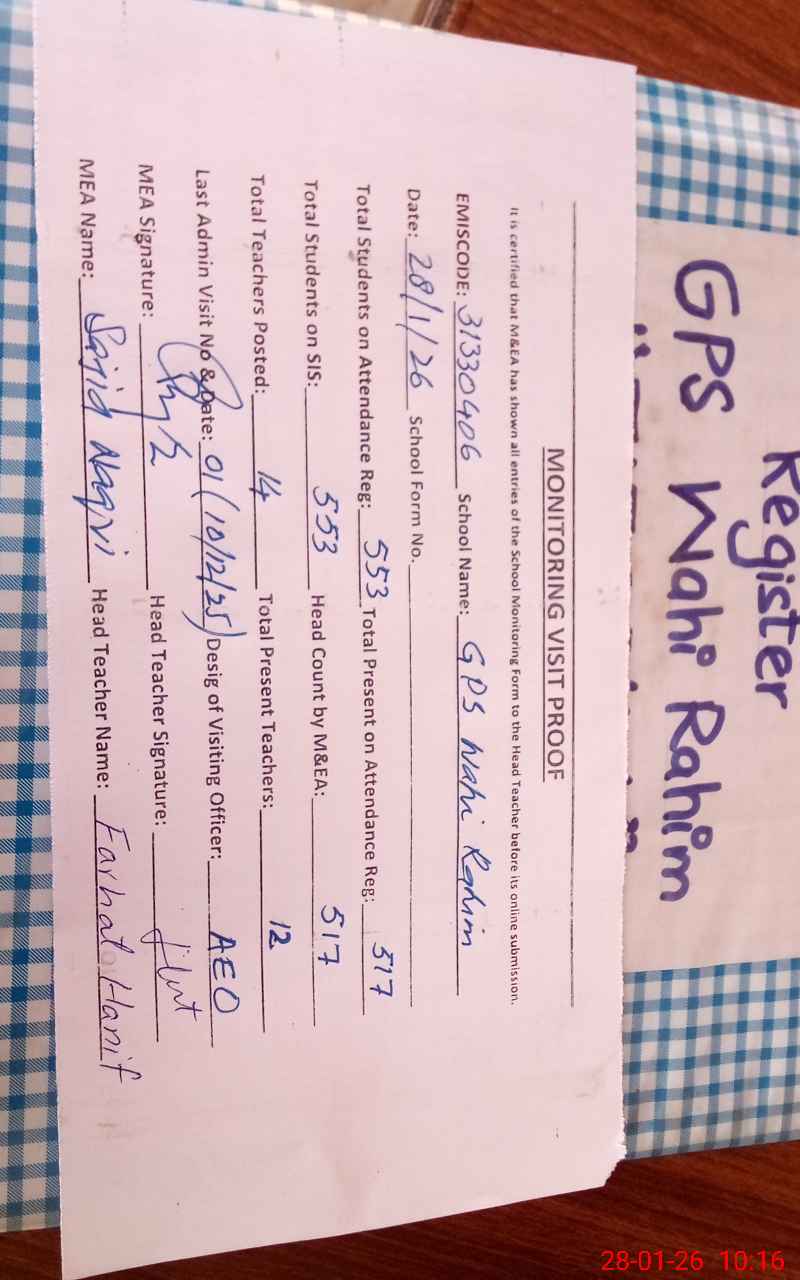 Register
GPS Wahi Rahim
MONITORING VISIT PROOF
It is certified that M&EA has shown all entries of the School Monitoring Form to the Head Teacher before its online submission.
EMISCODE: 31330406 School Name: GPS Wahi Rahim
Date: 28/1/26 School Form No.
Total Students on Attendance Reg: 553 Total Present on Attendance Reg: 517
Total Students on SIS: 553 Head Count by M&EA: 517
Total Teachers Posted: 14 Total Present Teachers: 12
Last Admin Visit No & Date: 01 (10/12/25) Desig of Visiting Officer: AEO
MEA Signature: Head Teacher Signature:
MEA Name: Sajid Naqvi Head Teacher Name: Farhat Hanif
28-01-26 10:16